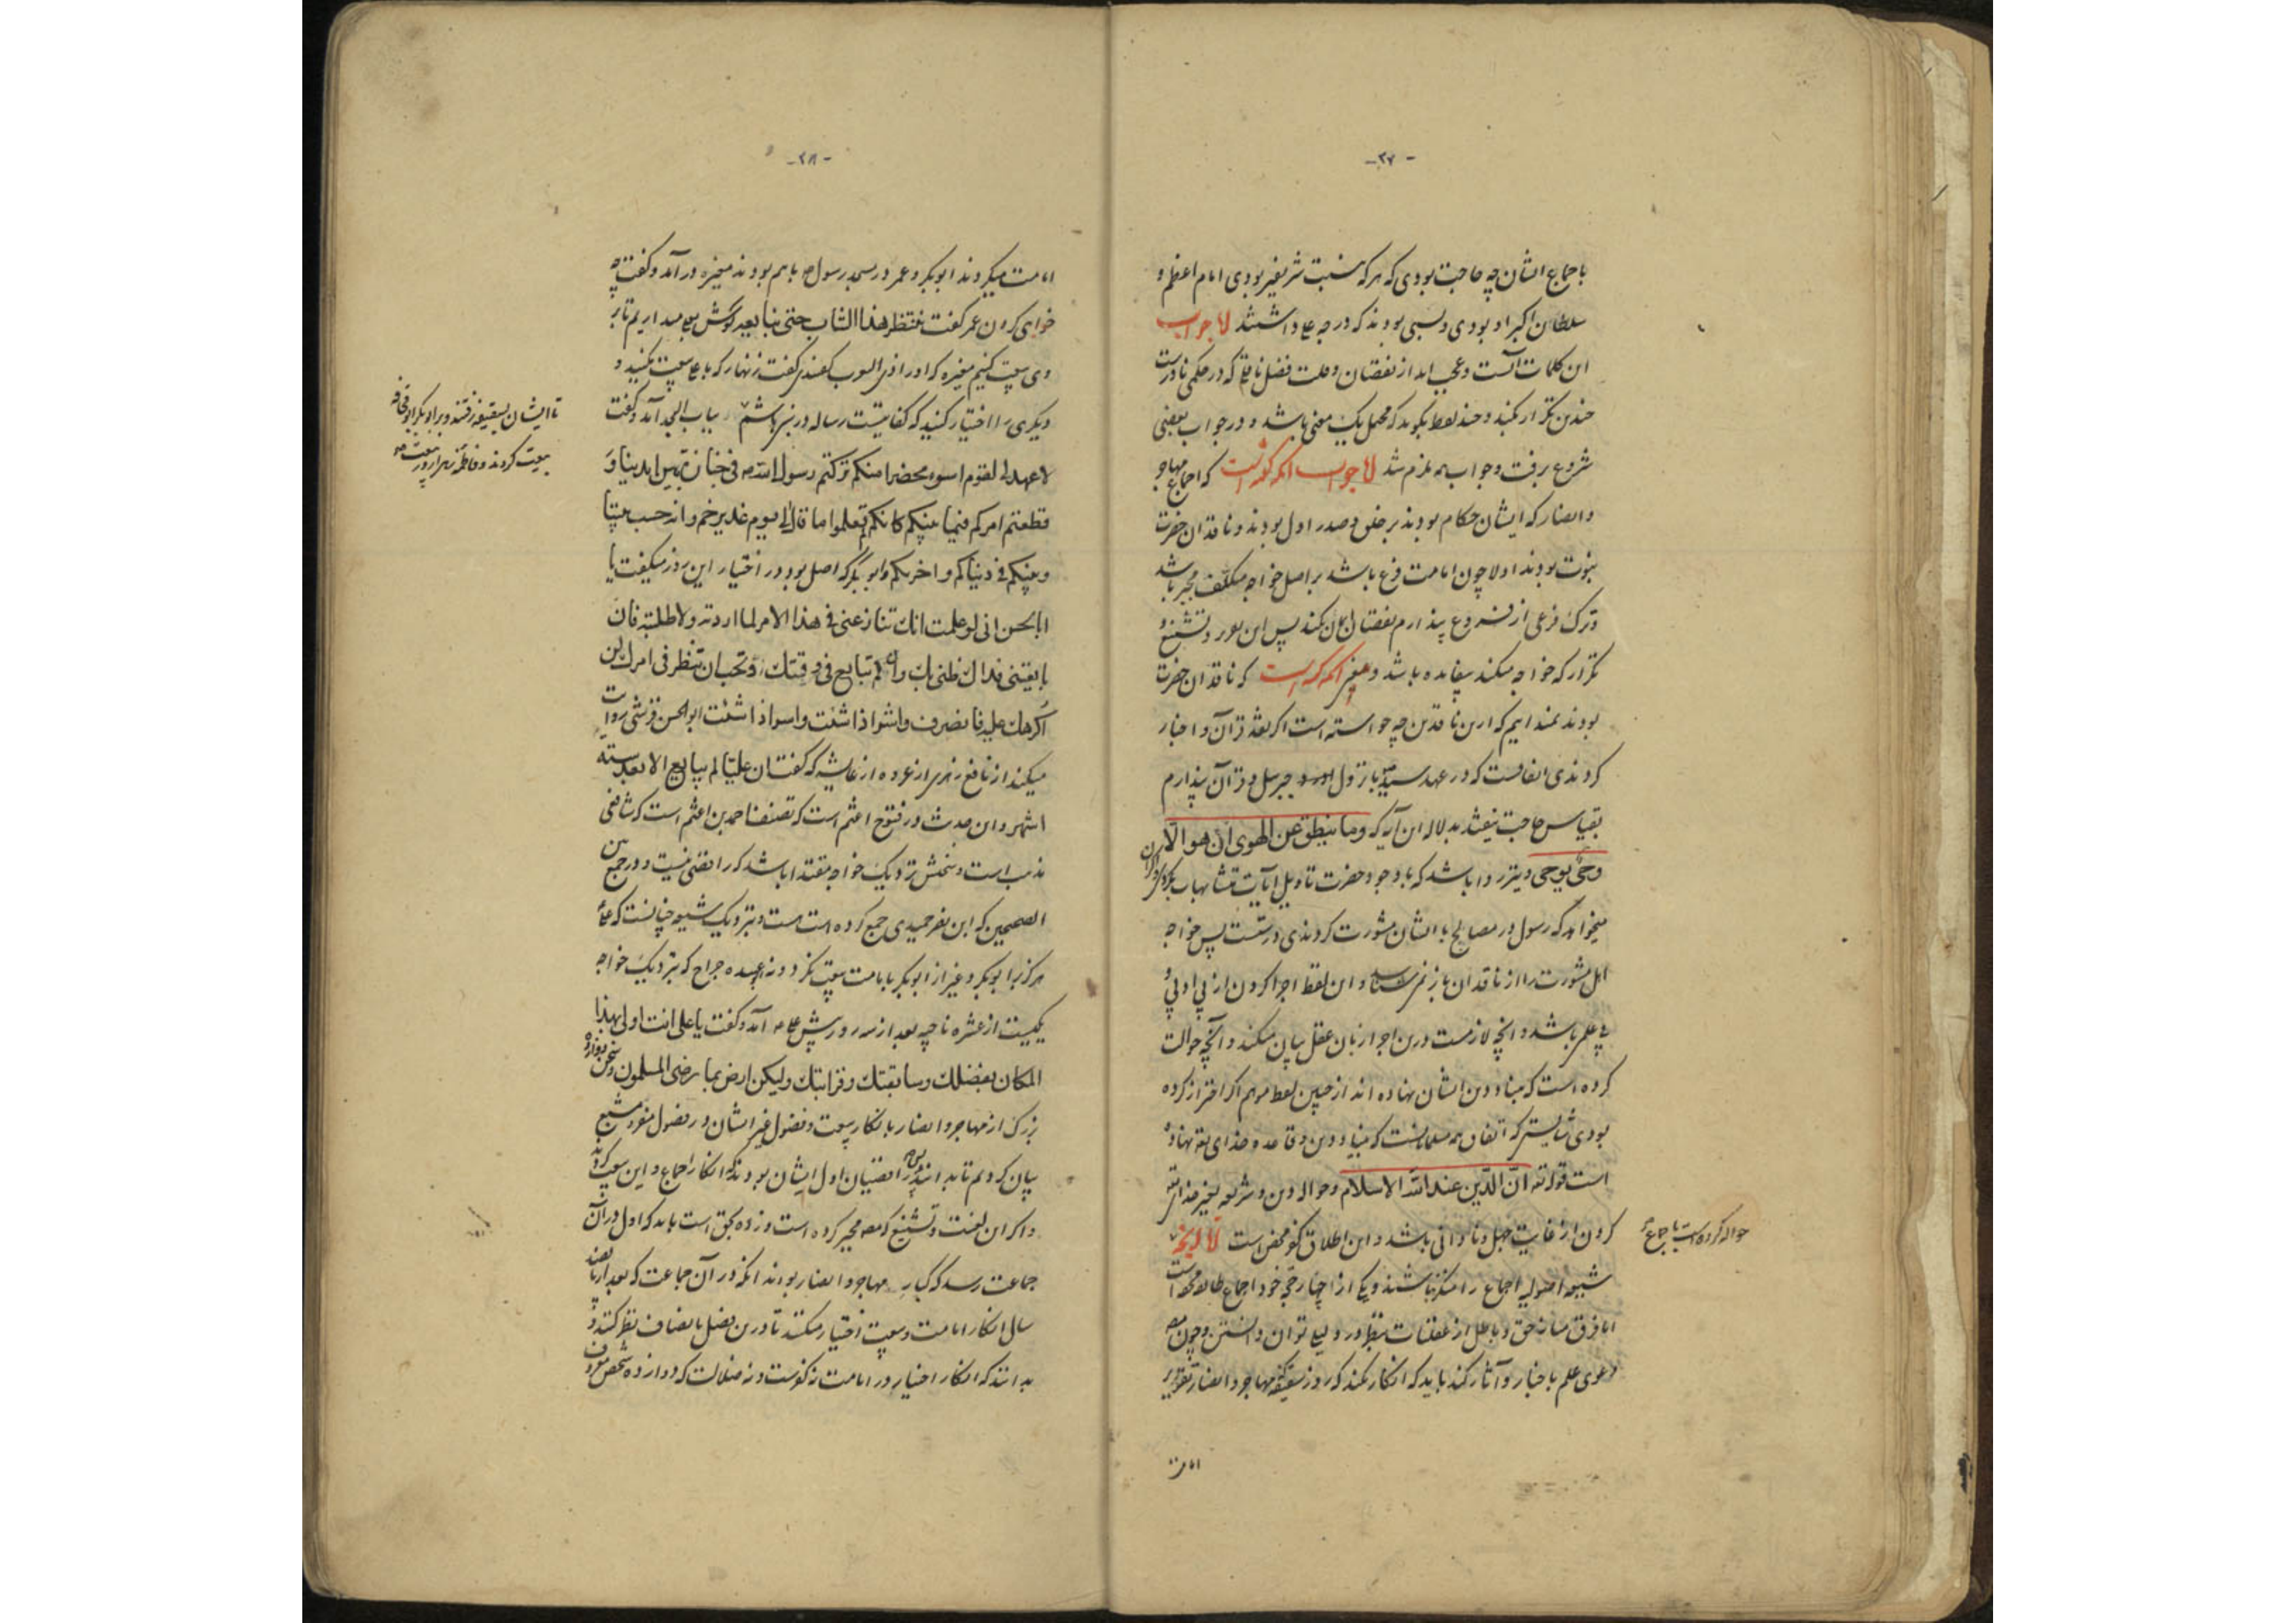 -۲۷-
باجماع ایشان چه حاجت بودی که هر که بنسبت شریفتر بودی امام اعظم و
سلطان اکبر او بودی و نسبی بودند که درجه علا داشتند لا جواب
این کلمات آنست و عجب اید از نقصان و علت فضل ناقل که در حکمی نادرست
چندین تکرار بکند و چند لفظ بگوید که محتمل یک معنی باشد و در جواب بعضی
شروع برفت و جواب همه ملزم شد لا جواب آنکه گفته است که اجماع مهاجر
و انصار که ایشان حکام بودند بر خلق و صدر اول بودند و ناقدان حضرت
نبوت بودند اولا چون امامت فرع باشد بر اصل خواجه مکلف مجبر باشد
و ترک فرعی از فروع پندارم نقصان ایمان نکند پس این همه رد و تشنیع و
تکرار که خواجه میکند بیفایده باشد و معنی آنکه گفته است که ناقدان حضرت
بودند نمیدانیم که ازین ناقدین چه خواسته است اگر نقد قرآن و اخبار
کردندی انصافست که در عهد سید با نزول جبرئیل و قرآن پندارم
بقیاس حاجت نیفتد بدلاله این آیه که وما ینطق عن الهوی ان هو الا
وحی یوحی و نیز روا باشد که با وجود حضرت تاویل آیات متشابهات
میخواهد که رسول در مصالح با ایشان مشورت کردندی درستست پس خواجه
اهل مشورت را از ناقدان باز نمیشناسد و این لفظ اجرا کردن از پی او پی و
بی علم باشد و آنچه لازمست درین اجرا زبان عقل بیان میکند و آنچه حوالت
کرده است که بنیاد دین ایشان نهاده اند از چنین لفظ موهم اگر احتراز کرده
بودی شایستی که اتفاق همه مسلمانست که بنیاد دین و قاعده خدای تعالی نهاده
است قوله تعالی ان الدین عند الله الاسلام و حواله دین و شریعه بغیر خدای تعالی
کردن از غایت جهل و نادانی باشد و این اطلاق کفر محض است
حواله کرده است باجماع
شیعه اصولیه اجماع را منکر نباشند و یکی از چهار حجه خود اجماع طایفه محقه است
اما فرق میانه حق و باطل از عقلیات بنظر و دلیل توان دانستن و چون
دعوی علم باخبار و آثار کند باید که انکار نکند که روز سقیفه مهاجر و انصار تقریر
امامت
-۲۸-
امامت میکردند ابوبکر و عمر در مسجد رسول باهم بودند مغیره در آمد و گفت چه
خواهی کردن عمر گفت ننتظر هذا الشاب حتی نبایعه گوش بعلی میداریم تا بر
وی بیعت کنیم مغیره گفت زنهار که با علی بیعت نکنید و
دیگری را اختیار کنید بباب الحجره آمد و گفت
تا ایشان بسقیفه رفتند و بر ابوبکر ابوقحافه
بیعت کردند و فاطمه زهرا
لا عهد لی بقوم اسوء محضرا منکم ترکتم رسول الله فی جنازة بین ایدینا و
قطعتم امرکم فیما بینکم کانکم لم تعلموا ما قال لی یوم غدیر خم والله حسیب بیننا
وبینکم فی دنیاکم واخریکم و ابوبکر که اصل بود در اختیار این روز میگفت یا
ابا الحسن انی لو علمت انک تنازعنی فی هذا الامر لما اردته ولا طلبته فان
بایعتنی فذاک ظنی بک وان لم تبایع فی وقتک وتحب ان تنظر فی امرک لن
اکرهک علیه فانصرف واشوا ذا شئت واسوا ذا شئت ابوالحسن قرشی روایت
میکند از نافع زهری از عروه از عایشه که گفت ان علیا لم یبایع الا بعد ستة
اشهر و این حدیث در فتوح اعثم است که تصنیف احمد بن اعثم است که شافعی
مذهب است و سخنش نزدیک خواجه مقتدا باشد که رافضی نیست و در جمع بین
الصحیحین که ابن نصر حمیدی جمع کرده است هست و نزدیک شیعه چنانست که علی
هرگز بر ابوبکر و غیر از ابوبکر بامامت بیعت نکرد و بوعبیده جراح که نزدیک خواجه
یکیست از عشره ناجیه بعد از سه روز پیش علی آمد و گفت یا علی انت اولی بهذا
المکان بفضلک وسابقتک وقرابتک ولیکن ارض بما رضی المسلمون و سخن دوازده
بزرگ از مهاجر و انصار بانکار بیعت و فضول غیر ایشان در فصول مشبع
بیان کردیم تا بدانند که رافضیان اول ایشان بودند که انکار اجماع و این بیعت کردند
و اگر این لعنت و تشنیع که مصنف مجبر کرده است و زده بحق است باید که اول در آن
جماعت رسد که کبار مهاجر و انصار بودند آنکه در آن جماعت که بعد از پانصد
سال انکار امامت و بیعت اختیار میکنند تا درین فصل بانصاف نظر کنند و
بدانند که انکار اختیار در امامت نه کفرست و نه ضلالت که دوازده شخص معروف